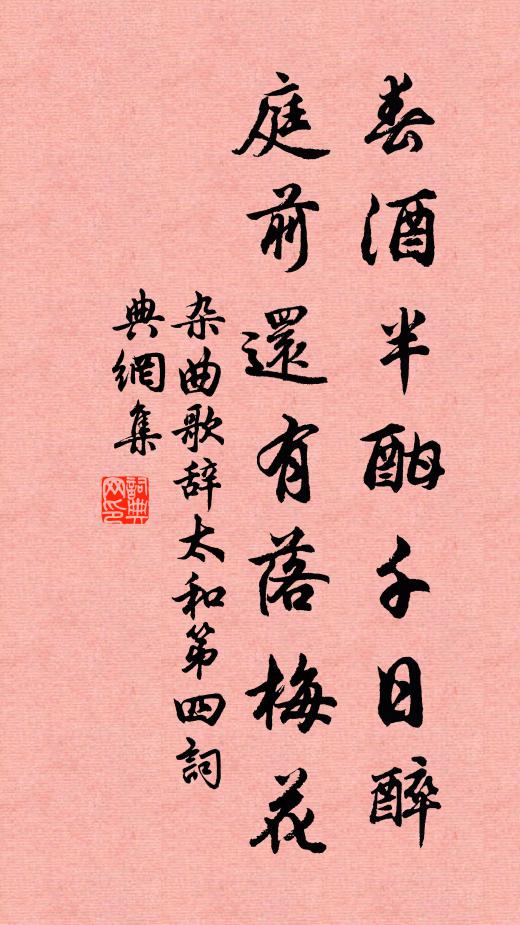 春酒半酣千日醉
庭前還有落梅花
杂曲歌辞太和第四詞
典網集
詞典
网印